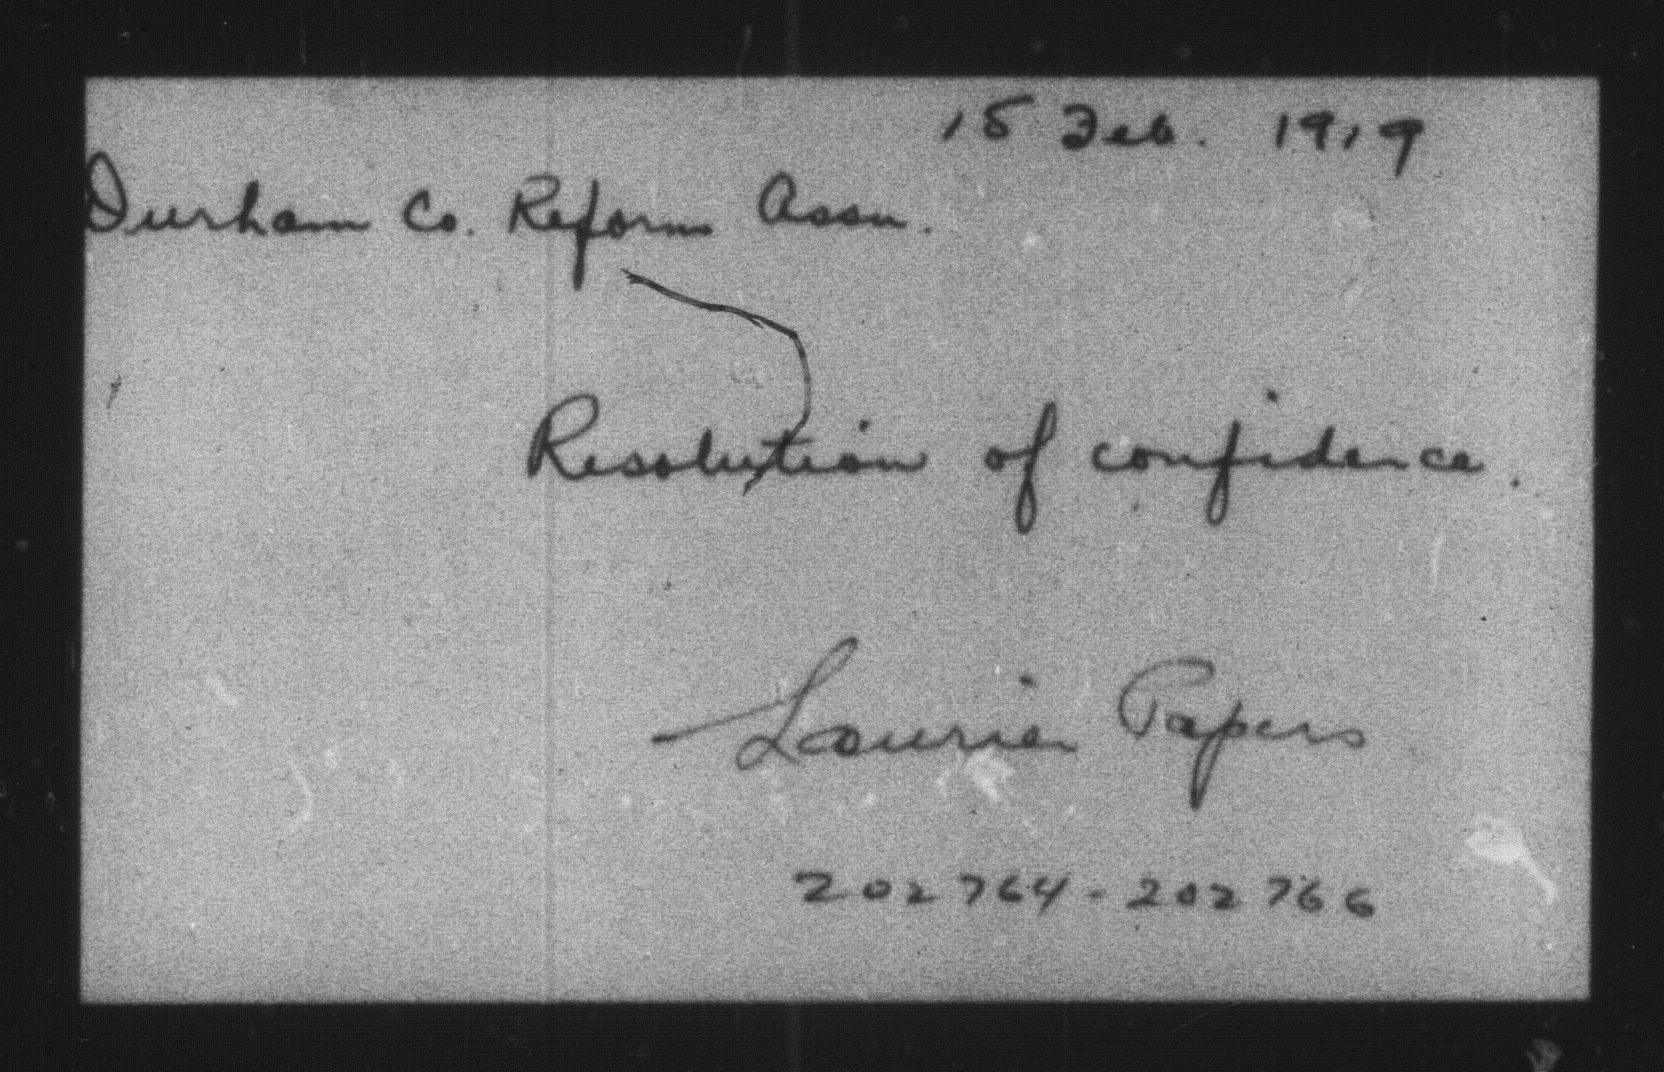 15 Feb. 1919
Durham Co. Reform Assn.
Resolution of confidence.
Laurier Papers
202764-202766